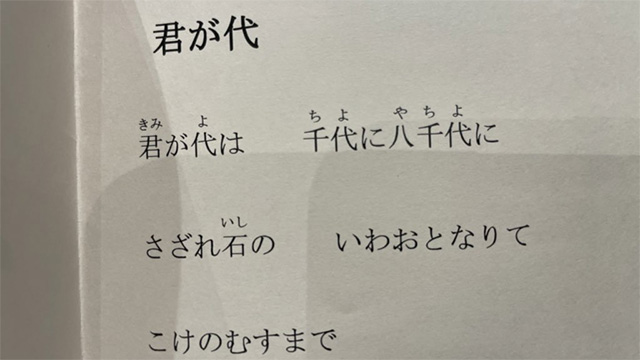 君が代
きみ よ ちよ やちよ
君が代は 千代に八千代に
いし
さざれ石の いわおとなりて
こけのむすまで